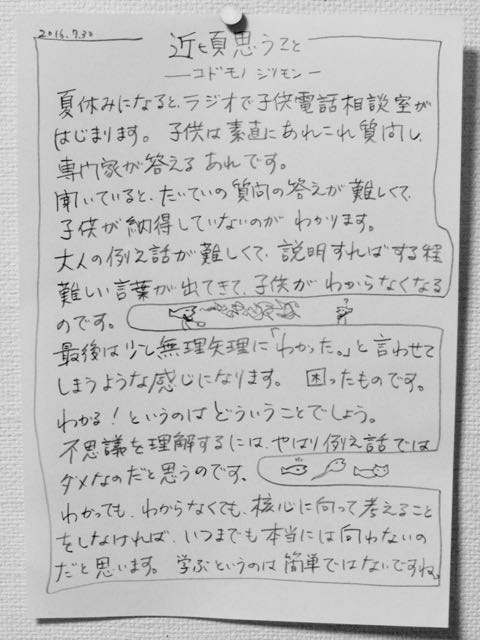 2016.7.30
近頃思うこと
―コドモノ ジツモン―
夏休みになると、ラジオで子供電話相談室が
はじまります。子供は素直にあれこれ質問し、
専門家が答える あれです。
聞いていると、たいていの質問の答えが難しくて、
子供が納得していないのが わかります。
大人の例え話が難しくて、説明すればする程
難しい言葉が出てきて、子供が わからなくなる
のです。
最後は少し無理矢理に「わかった。」と言わせて
しまうような感じになります。 困ったものです。
わかる!というのは どういうことでしょう。
不思議を理解するには、やはり例え話では
ダメなのだと思うのです。
わかっても、わからなくても、核心に向って考えること
をしなければ、いつまでも本当には向わないの
だと思います。 学ぶというのは 簡単ではないですね。